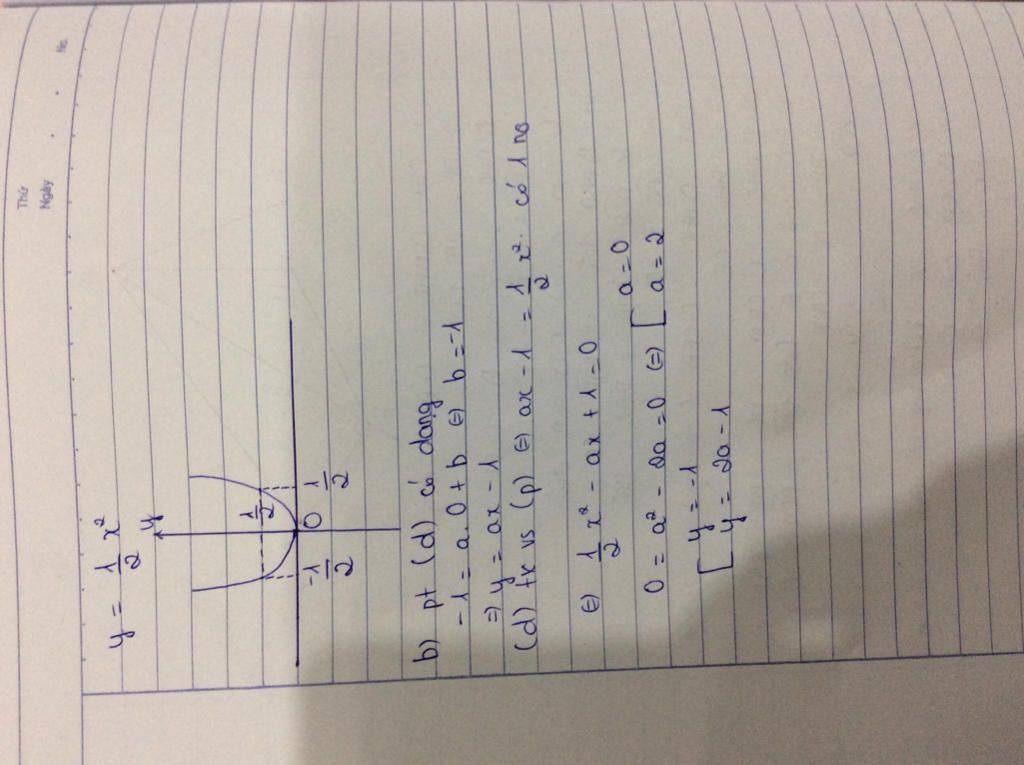 Thứ
Ngày
No.
y = 1/2 x²
y
1/2
-1/2
0
1/2
b) pt (d) có dạng
-1 = a.0 + b ⇔ b = -1
⇒ y = ax - 1
(d) tx vs (p) ⇔ ax - 1 = 1/2 x² có 1 no
⇔ 1/2 x² - ax + 1 = 0
0 = a² - 2a = 0 ⇔ [ a = 0
a = 2
[ y = -1
y = 2a - 1